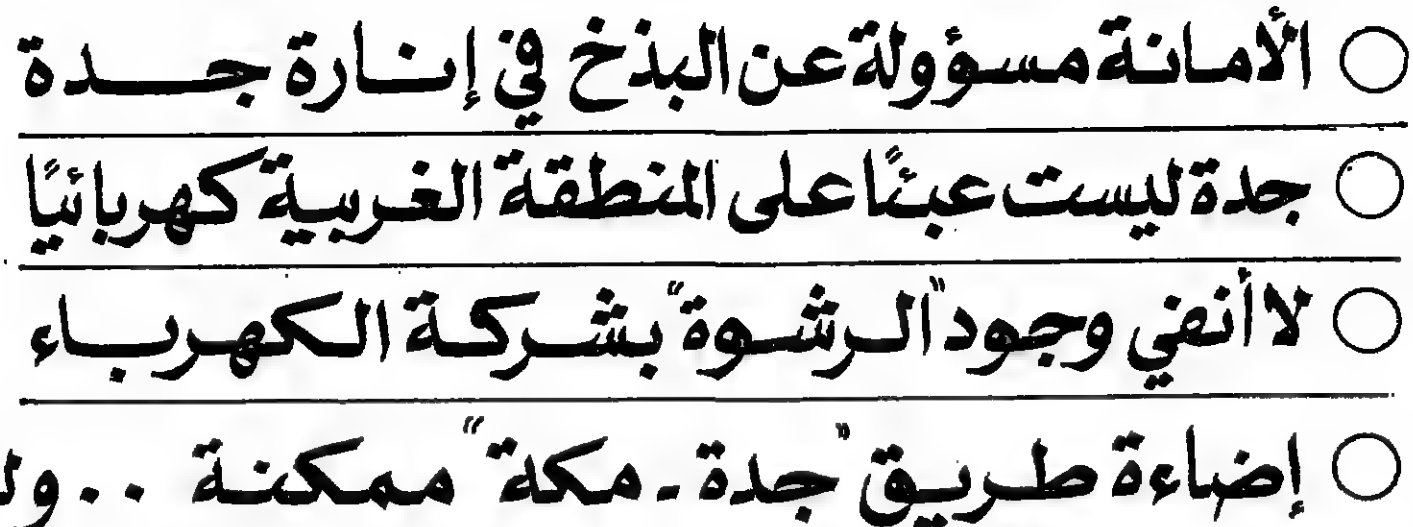 ○ الأمانة مسؤولة عن البذخ في إنارة جدة
○ جدة ليست عبئًا على المنطقة الغربية كهربائيًا
○ لا أنفي وجود "الرشوة" بشركة الكهرباء
○ إضاءة طريق "جدة - مكة" ممكنة ..